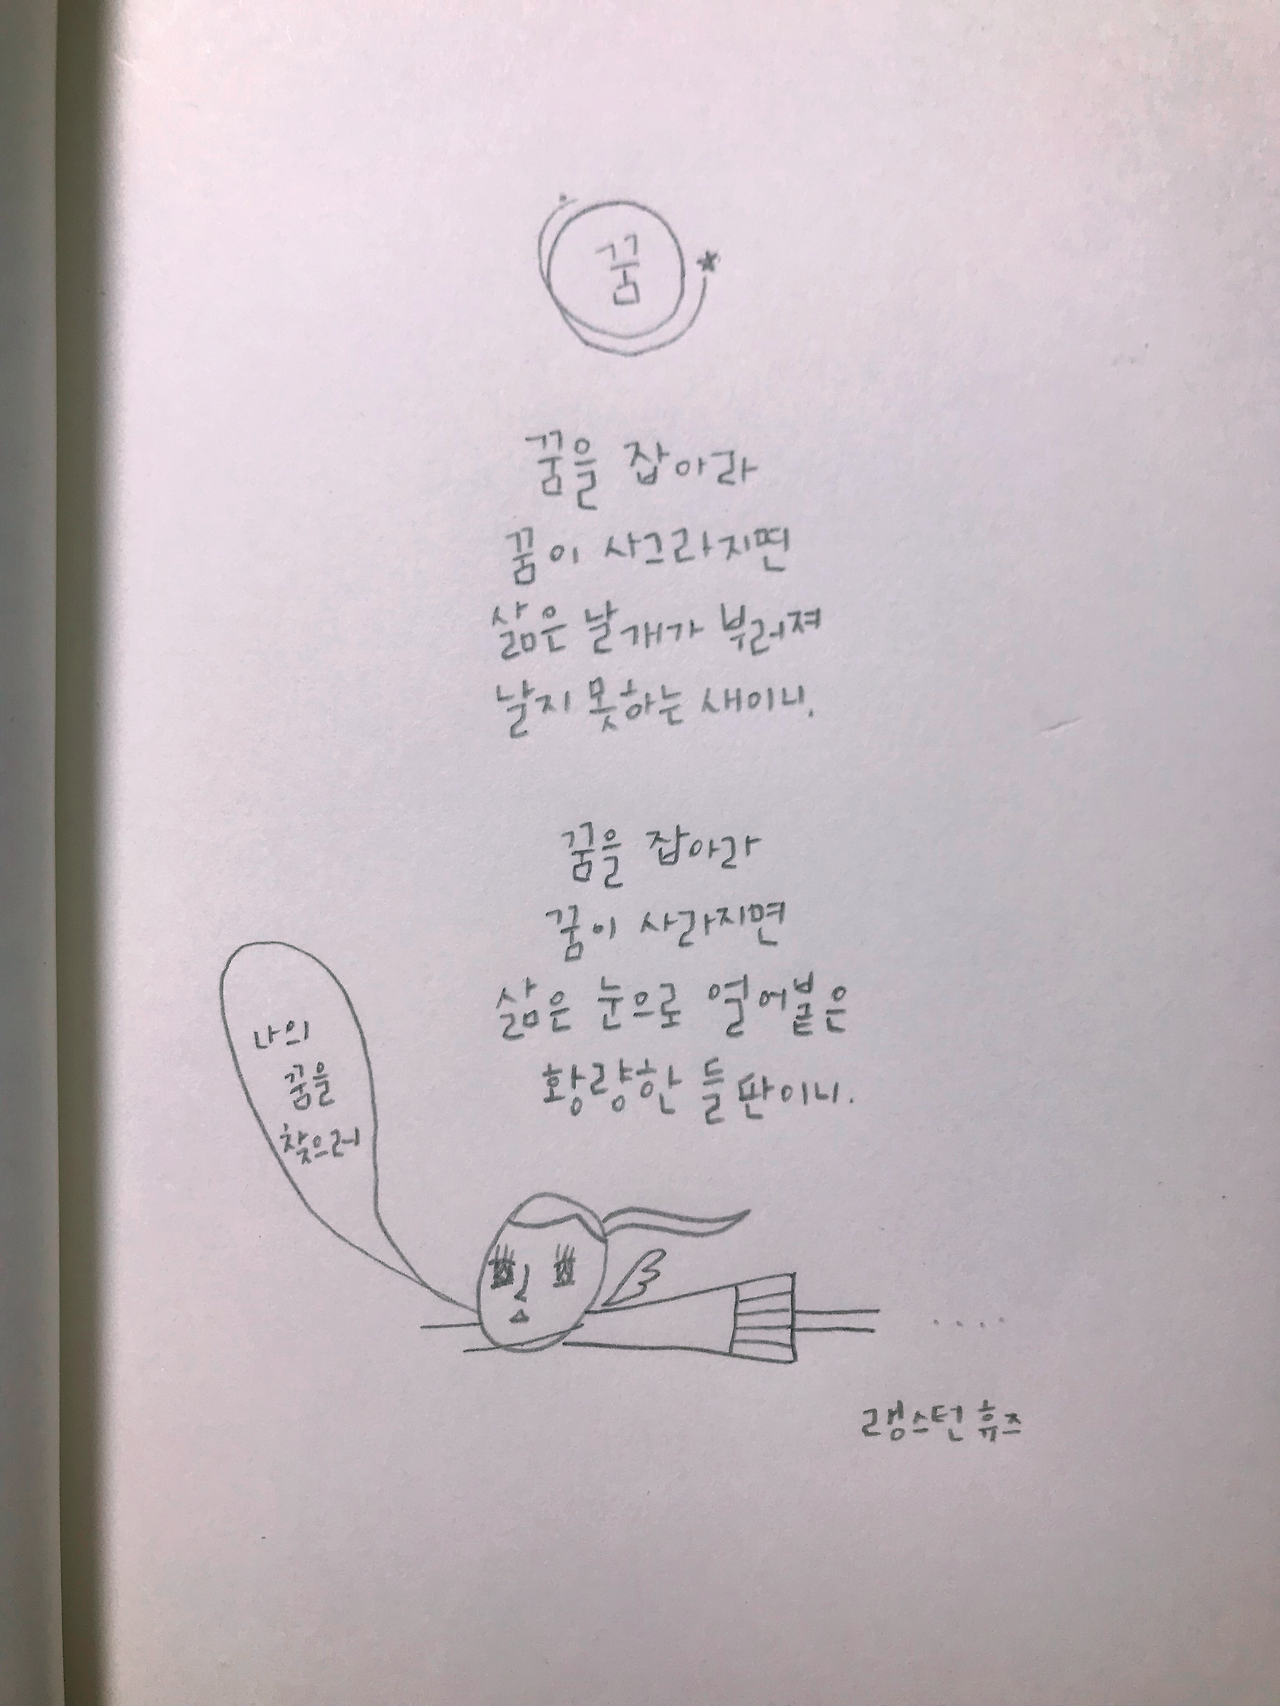 꿈
꿈을 잡아라
꿈이 사그라지면
삶은 날개가 부러져
날지 못하는 새이니.
꿈을 잡아라
꿈이 사라지면
삶은 눈으로 얼어붙은
황량한 들판이니.
나의
꿈을
찾으러
랭스턴 휴즈